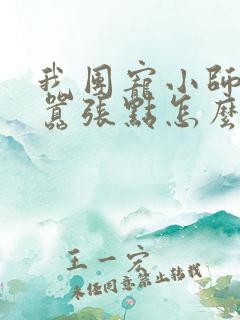 我團寵小師
囂張點怎麼
王一宏
未經同意禁止转载